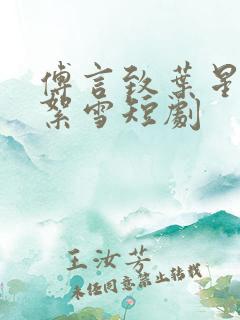 傅言致葉星
絮雪短劇
王汝芳
未经同意禁止转载